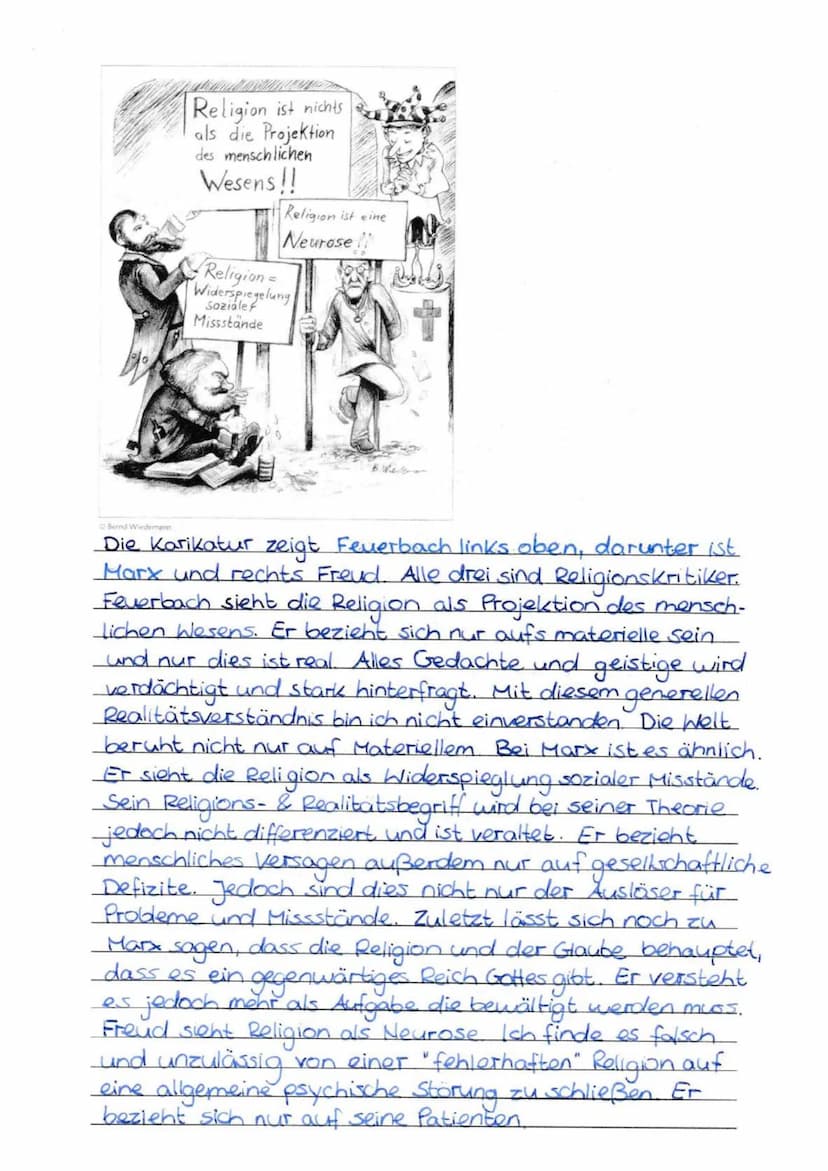 Religion ist nichts
als die Projektion
des menschlichen
Wesens!!
Religion ist eine
Neurose!!
Religion =
Widerspiegelung
sozialer
Missstände
© Bernd Wiedemann
Die Karikatur zeigt Feuerbach links oben, darunter ist
Marx und rechts Freud. Alle drei sind Religionskritiker.
Feuerbach sieht die Religion als Projektion des mensch-
lichen Wesens. Er bezieht sich nur aufs materielle sein
und nur dies ist real. Alles Gedachte und geistige wird
verdächtigt und stark hinterfragt. Mit diesem generellen
Realitätsverständnis bin ich nicht einverstanden. Die Welt
beruht nicht nur auf Materiellem. Bei Marx ist es ähnlich.
Er sieht die Religion als Widerspieglung sozialer Misstände.
Sein Religions- & Realitätsbegriff wird bei seiner Theorie
jedoch nicht differenziert und ist veraltet. Er bezieht
menschliches Versagen außerdem nur auf gesellschaftliche
Defizite. Jedoch sind dies nicht nur der Auslöser für
Probleme und Missstände. Zuletzt lässt sich noch zu
Marx sagen, dass die Religion und der Glaube behauptet,
dass es ein gegenwärtiges Reich Gottes gibt. Er versteht
es jedoch mehr als Aufgabe die bewältigt werden muss.
Freud sieht Religion als Neurose. Ich finde es falsch
und unzulässig von einer "fehlerhaften" Religion auf
eine allgemeine psychische Störung zu schließen. Er
bezieht sich nur auf seine Patienten.